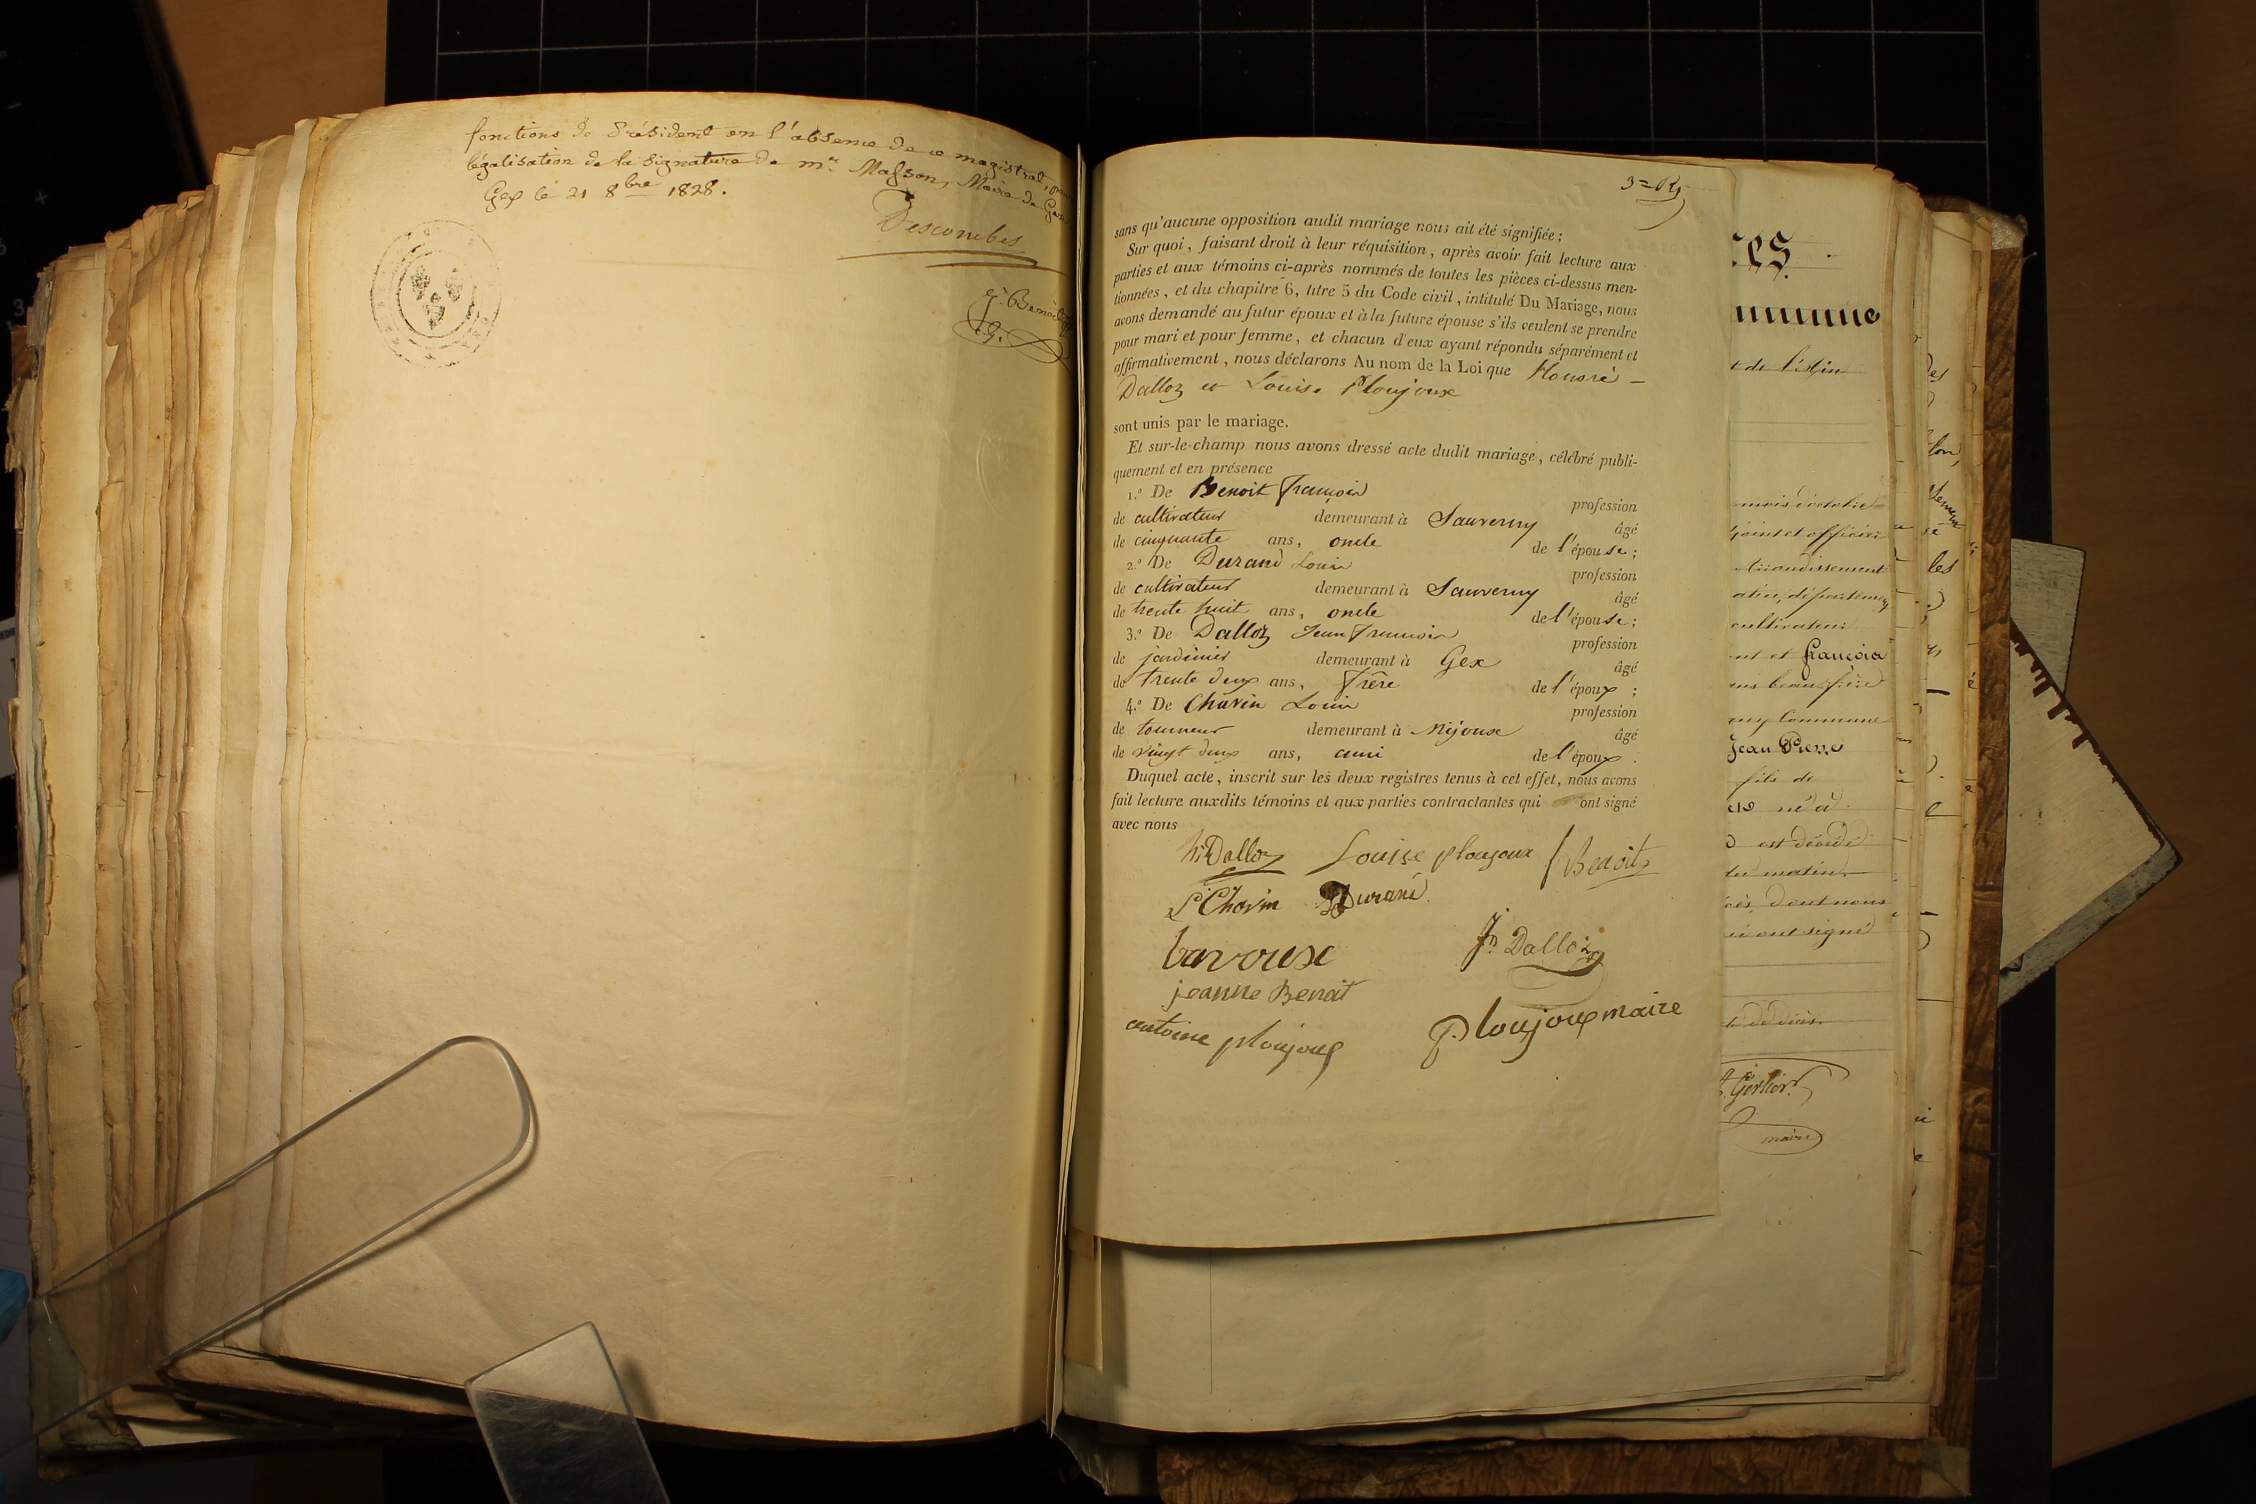 fonctions de Président en l'absence de ce magistrat, pour
légalisation de la signature de mr. Masson, Maire de Gex
Gex le 21 8bre 1828.
Descombes
3=R
sans qu'aucune opposition audit mariage nous ait été signifiée;
Sur quoi, faisant droit à leur réquisition, après avoir fait lecture aux
parties et aux témoins ci-après nommés de toutes les pièces ci-dessus men-
tionnées, et du chapitre 6, titre 5 du Code civil, intitulé Du Mariage, nous
avons demandé au futur époux et à la future épouse s'ils veulent se prendre
pour mari et pour femme, et chacun d'eux ayant répondu séparément et
affirmativement, nous déclarons Au nom de la Loi que Honoré –
Dalloz et Louise Ploujoux
sont unis par le mariage.
Et sur-le-champ nous avons dressé acte dudit mariage, célébré publi-
quement et en présence
1.º De Benoit François
profession
de cultivateur demeurant à Sauverny
âgé
de cinquante ans, oncle de l'épouse;
2.º De Durand Louis
profession
de cultivateur demeurant à Sauverny
âgé
de trente huit ans, oncle de l'épouse;
3.º De Dalloz Jean François
profession
de jardinier demeurant à Gex
âgé
de trente deux ans, frère de l'époux;
4.º De Chavin Louis
profession
de tourneur demeurant à Mijoux
âgé
de vingt deux ans, ami de l'époux.
Duquel acte, inscrit sur les deux registres tenus à cet effet, nous avons
fait lecture auxdits témoins et aux parties contractantes qui ont signé
avec nous
h: Dalloz Louise ploujoux f Benoit
Ls Chavin Durand
bavoux Jn Dalloz
jeanne Benoit
antoine ploujoux P. loujoux maire
ces
mmune
t de l'Ain
mois d'octobre
djoint et officier
Arrondissement
atin, départem
cultivateur
nt et françois
ans beau frère
ny Commune
Jean Pierre
fils de
né à
est décédé
du matin
cès dont nous
ui ont signé
de décès.
maire
les